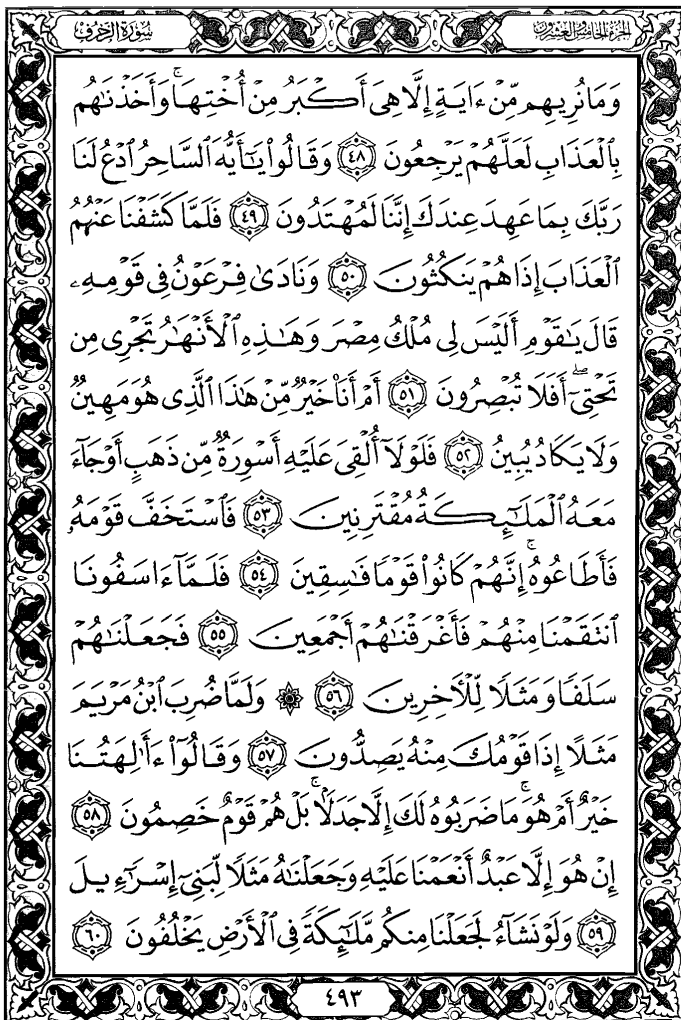 الجزء الخامس والعشرون
سورة الزخرف
وَمَا نُرِيهِم مِّنْ ءَايَةٍ إِلَّا هِىَ أَكْبَرُ مِنْ أُخْتِهَا ۚ وَأَخَذْنَٰهُم
بِٱلْعَذَابِ لَعَلَّهُمْ يَرْجِعُونَ ٤٨ وَقَالُوا۟ يَٰٓأَيُّهَ ٱلسَّاحِرُ ٱدْعُ لَنَا
رَبَّكَ بِمَا عَهِدَ عِندَكَ إِنَّنَا لَمُهْتَدُونَ ٤٩ فَلَمَّا كَشَفْنَا عَنْهُمُ
ٱلْعَذَابَ إِذَا هُمْ يَنكُثُونَ ٥٠ وَنَادَىٰ فِرْعَوْنُ فِى قَوْمِهِۦ
قَالَ يَٰقَوْمِ أَلَيْسَ لِى مُلْكُ مِصْرَ وَهَٰذِهِ ٱلْأَنْهَٰرُ تَجْرِى مِن
تَحْتِىٓ ۖ أَفَلَا تُبْصِرُونَ ٥١ أَمْ أَنَا۠ خَيْرٌ مِّنْ هَٰذَا ٱلَّذِى هُوَ مَهِينٌ
وَلَا يَكَادُ يُبِينُ ٥٢ فَلَوْلَآ أُلْقِىَ عَلَيْهِ أَسْوِرَةٌ مِّن ذَهَبٍ أَوْ جَآءَ
مَعَهُ ٱلْمَلَٰٓئِكَةُ مُقْتَرِنِينَ ٥٣ فَٱسْتَخَفَّ قَوْمَهُۥ
فَأَطَاعُوهُ ۚ إِنَّهُمْ كَانُوا۟ قَوْمًا فَٰسِقِينَ ٥٤ فَلَمَّآ ءَاسَفُونَا
ٱنتَقَمْنَا مِنْهُمْ فَأَغْرَقْنَٰهُمْ أَجْمَعِينَ ٥٥ فَجَعَلْنَٰهُمْ
سَلَفًا وَمَثَلًا لِّلْءَاخِرِينَ ٥٦ ۞ وَلَمَّا ضُرِبَ ٱبْنُ مَرْيَمَ
مَثَلًا إِذَا قَوْمُكَ مِنْهُ يَصِدُّونَ ٥٧ وَقَالُوٓا۟ ءَأَٰلِهَتُنَا
خَيْرٌ أَمْ هُوَ ۚ مَا ضَرَبُوهُ لَكَ إِلَّا جَدَلًۢا ۚ بَلْ هُمْ قَوْمٌ خَصِمُونَ ٥٨
إِنْ هُوَ إِلَّا عَبْدٌ أَنْعَمْنَا عَلَيْهِ وَجَعَلْنَٰهُ مَثَلًا لِّبَنِىٓ إِسْرَٰٓءِيلَ
٥٩ وَلَوْ نَشَآءُ لَجَعَلْنَا مِنكُم مَّلَٰٓئِكَةً فِى ٱلْأَرْضِ يَخْلُفُونَ ٦٠
٤٩٣